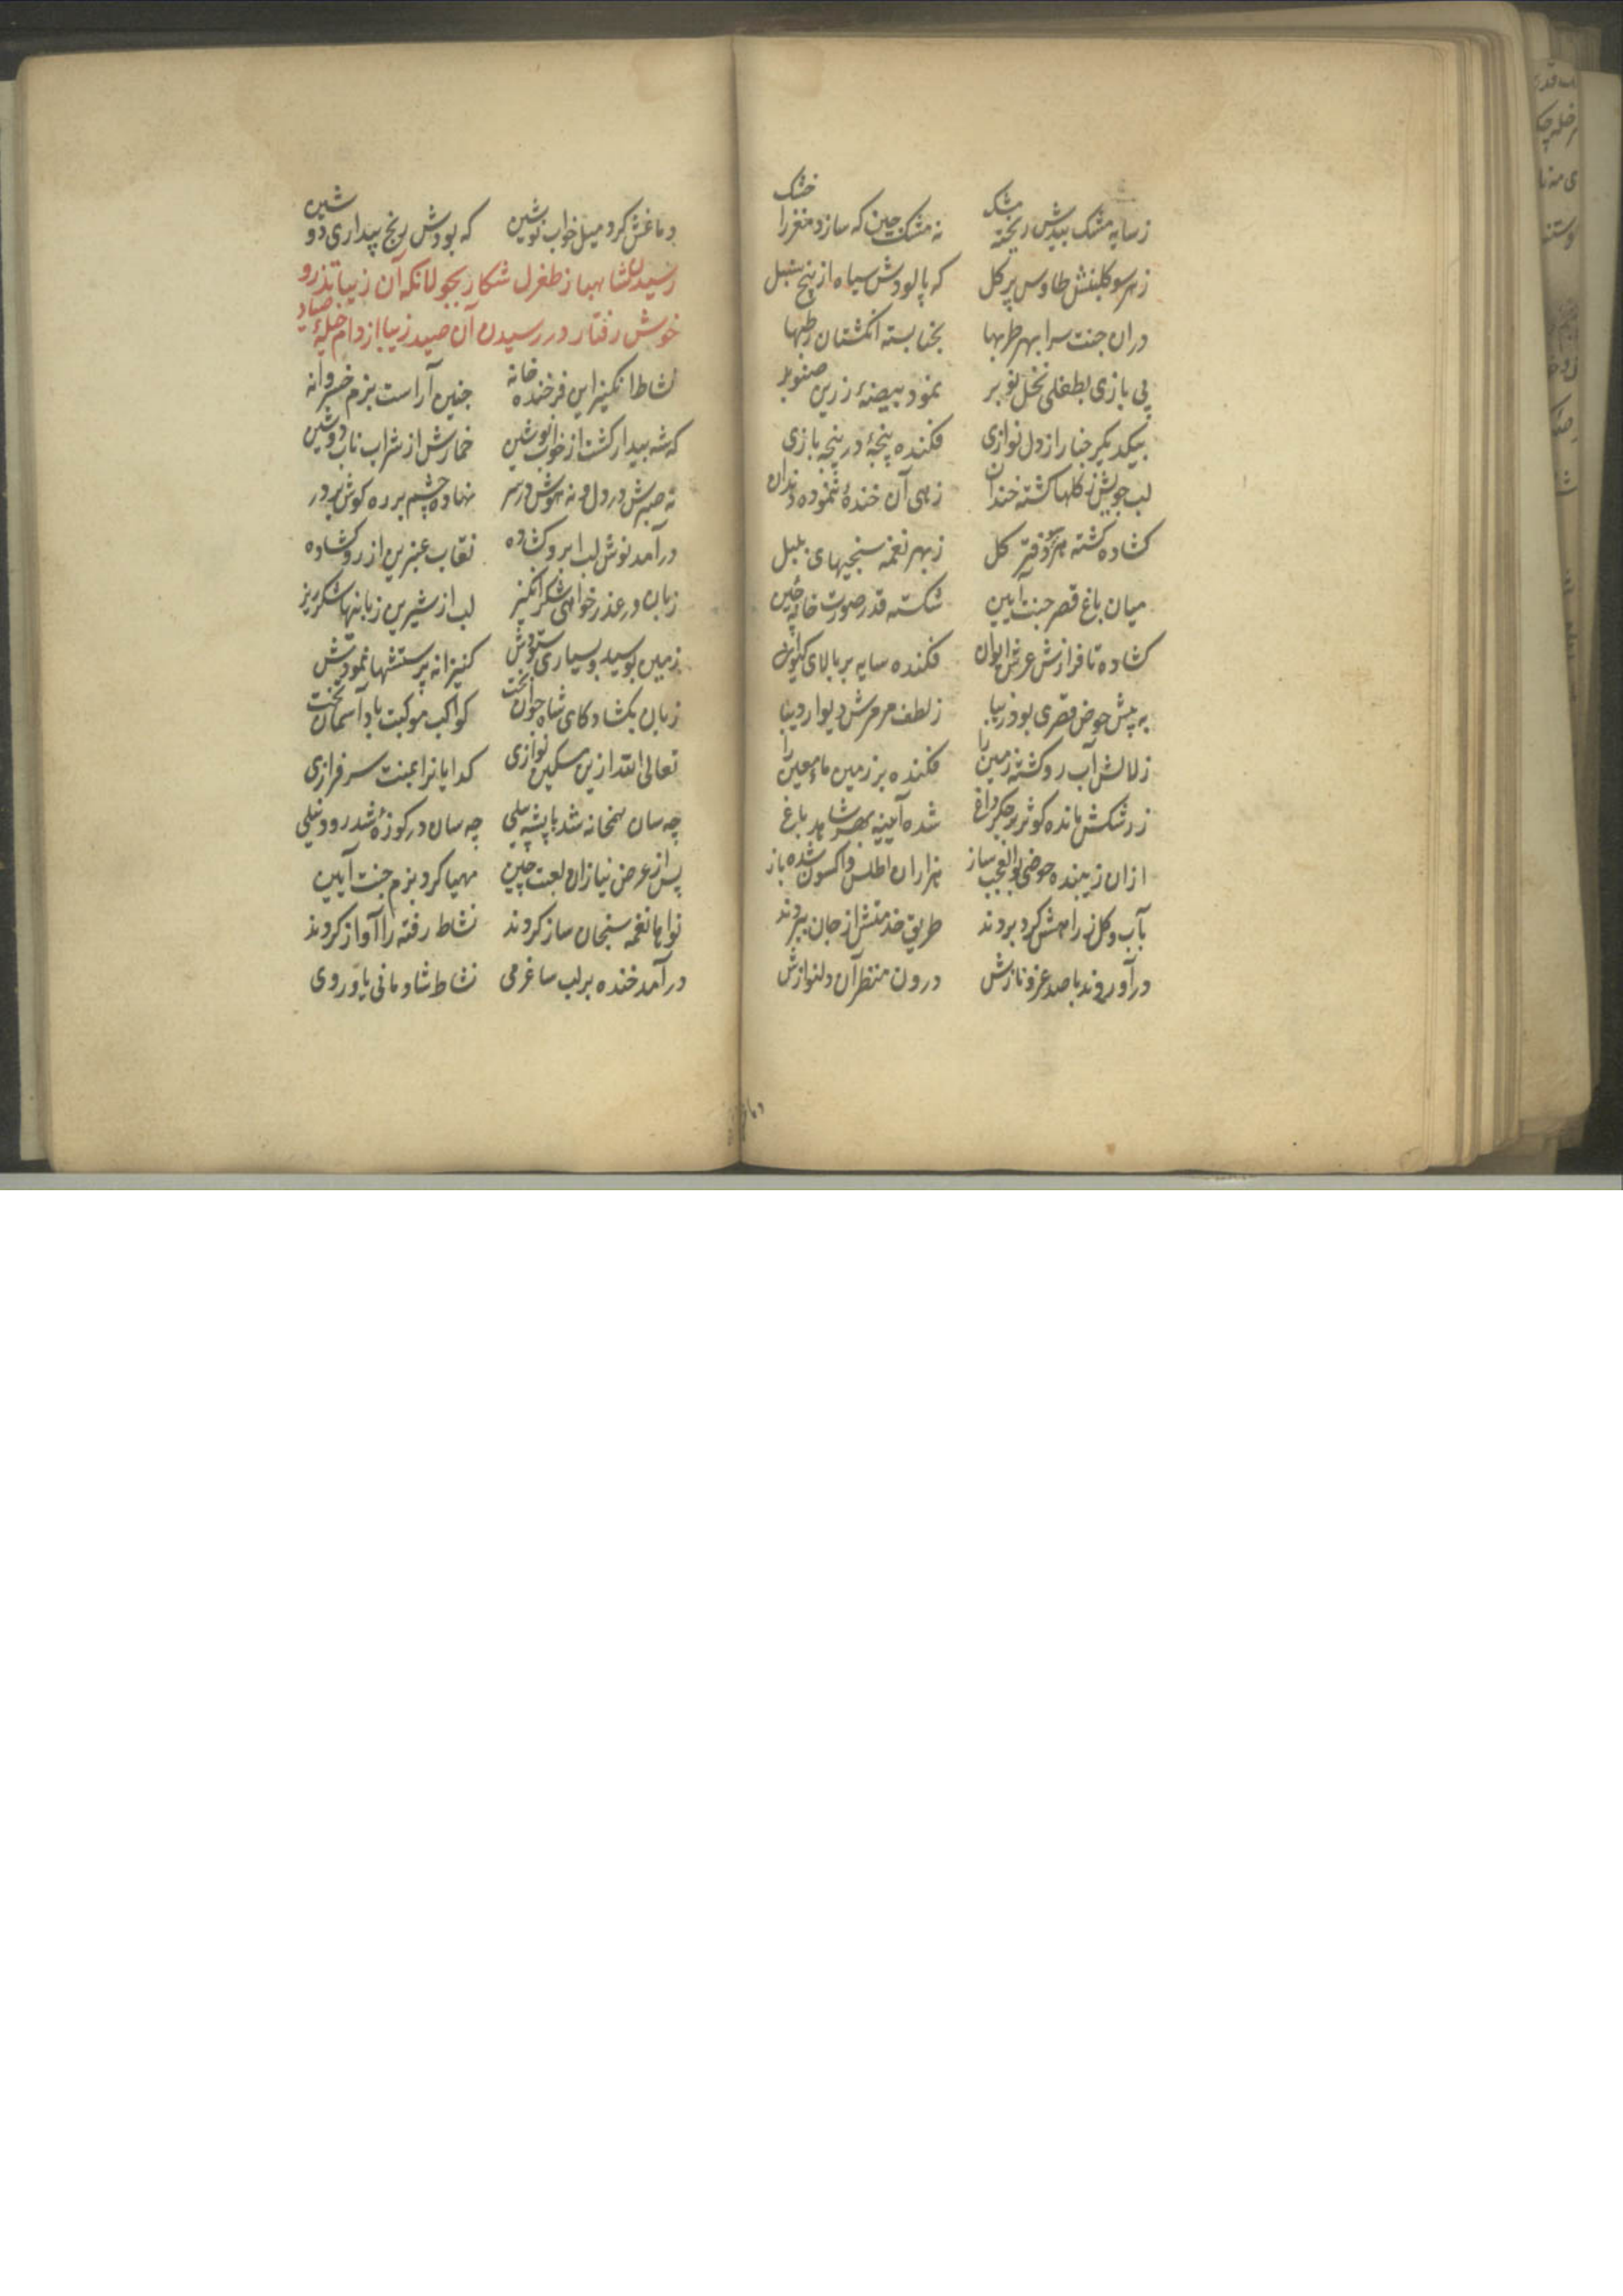 زسایه مشک بیدش ریخته مشک نه مشک چین که سازد مغز را خشک
زهر سو کلبنش طاوس پر کل که پالودش سیاه از بیخ سنبل
دران جنت سرا بهر طربها بحنا بسته انکشتان رطبها
پی بازی بطفلی نخل نوبر نمود بیضهٔ زرین صنوبر
بیکدیکر چنار از دل نوازی فکنده پنجهٔ در پنجه بازی
لب جویش ز کلها کشته خندان زهی آن خندهٔ ننموده دندان
کشاده کشته هر سو دفتر کل زبهر نغمه سنجیهای بلبل
میان باغ قصر جنت آیین شکسته قدر صورت خانه چین
کشاده تا فرازش عرش ایوان فکنده سایه بر بالای کیوان
به پیش حوض قصری بود زیبا ز لطف مرمرش دیوار دیبا
زلالش آب رو کشته زمین را فکنده بر زمین ماء معین را
ز رشکش مانده کوثر بر جکر داغ شده آیینه بهر شاهد باغ
ازان زیبنده حوض بوالعجب ساز هزاران اطلس و اکسون شده باز
بآب و کل ز راهش کرد بردند طریق خدمتش از جان سپردند
درآوردند با صد عز و نازش درون منظر آن دلنوازش
دماغش کرد میل خواب نوشین که بودش رنج بیداری دوشین
رسیدن شاهباز طغرل شکار بجولانکه آن زیبا تذرو
خوش رفتار در رسیدن آن صید زیبا از دام حیلهٔ صیاد
نشاط انکیز این فرخنده خانه چنین آراست بزم خسروانه
که شه بیدار کشت از خواب نوشین خمارش از شراب ناب دوشین
نه صبرش در دل و نه هوش در سر نهاده چشم بر ره کوش بر در
درآمد نوش لب ابرو کشاده نقاب عنبرین از رو کشاده
زبان در عذر خواهی شکر انکیز لب از شیرین زبانیها شکرریز
زمین بوسید و بسیاری ستودش کنیزانه پرستشها نمودش
زبان بکشاد کای شاه جوان بخت کواکب موکبت باد آسمان تخت
تعالی الله ازین مسکین نوازی کدایانرا بمنت سرفرازی
چه سان همخانه شد با پشه پیلی چه سان در کوزهٔ شد رود نیلی
پس از عرض نیاز آن لعبت چین مهیا کرد بزم جنت آیین
نواها نغمه سنجان ساز کردند نشاط رفته را آواز کردند
درآمد خنده بر لب ساغر می نشاط شادمانی یاور وی